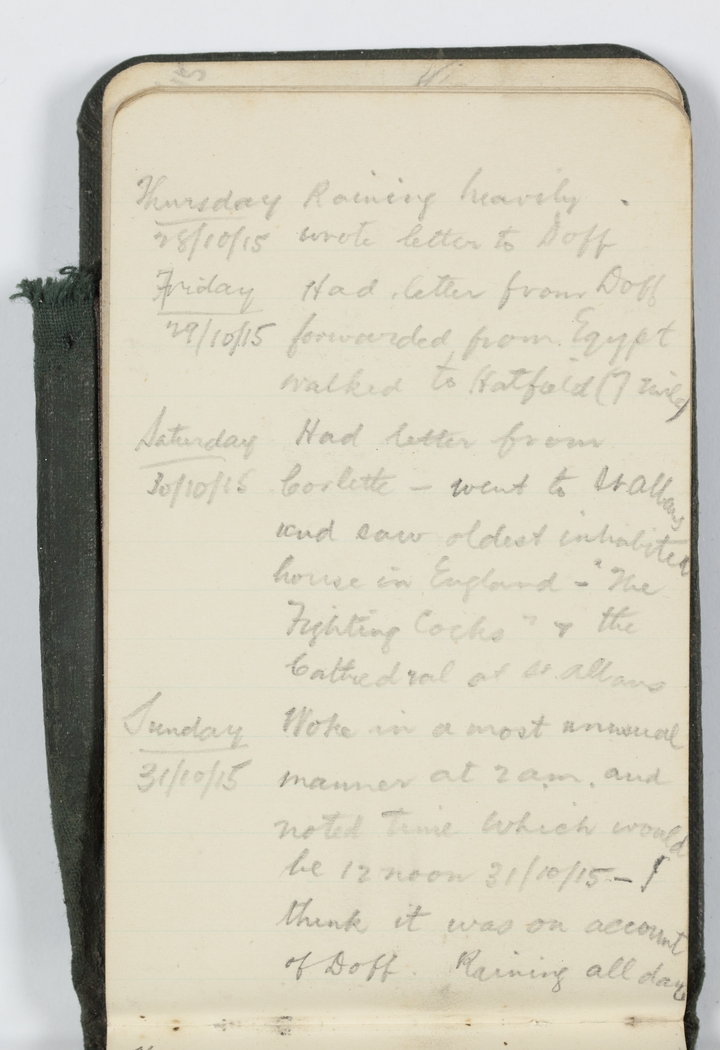 Thursday Raining heavily .
28/10/15 wrote letter to Doff
Friday Had letter from Doff
29/10/15 forwarded from Egypt
walked to Hatfield (7 miles)
Saturday Had letter from
30/10/15 Corlette – went to St Albans
and saw oldest inhabited
house in England – "The
Fighting Cocks" & the
Cathedral at St Albans
Sunday Woke in a most unusual
31/10/15 manner at 2 a.m. and
noted time which would
be 12 noon 31/10/15 – I
think it was on account
of Doff. Raining all day